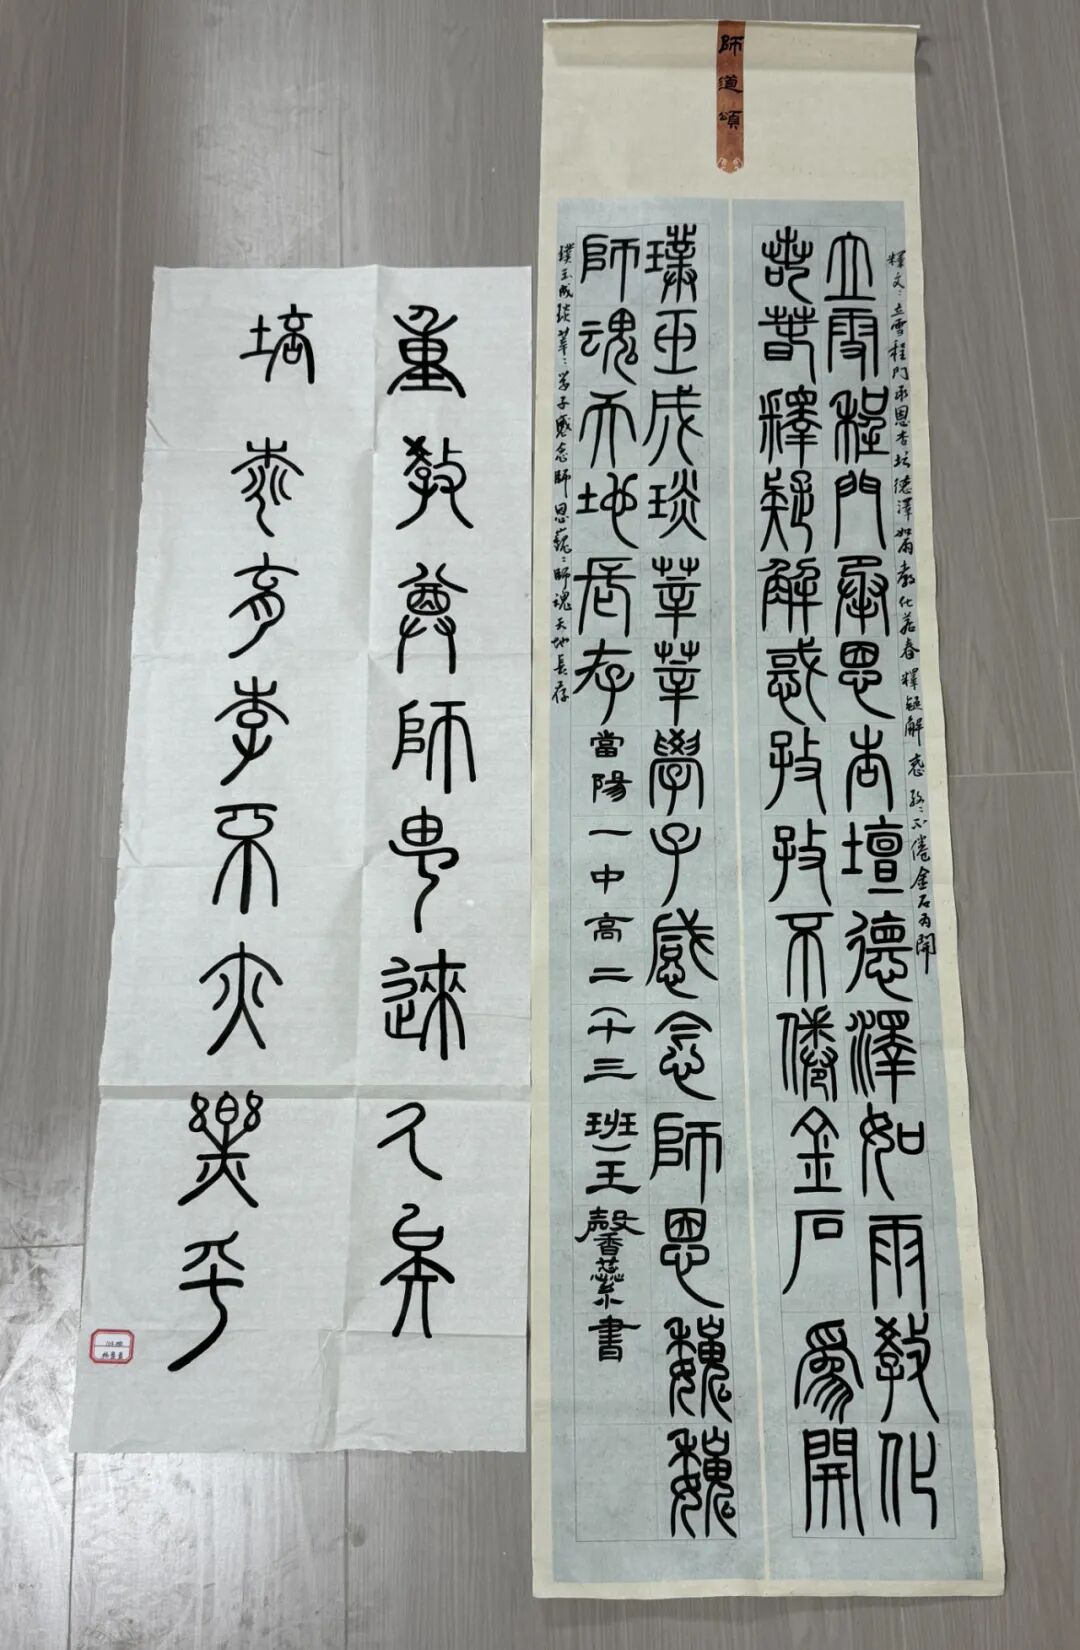 師道頌
釋文：立雪程門承恩杏坛德澤如雨教化若春釋疑解惑孜〻不倦金石为開
立雪程門承恩杏壇德澤如雨教化
若春釋疑解惑孜孜不倦金石為開
璞玉成琰莘莘學子感念師恩巍巍
師魂天地長存當陽一中高二（十三班）王馨書
璞玉成琰莘〻学子感念師恩巍〻師魂天地長存
重教尊師由來久矣
培桃育李不亦樂乎